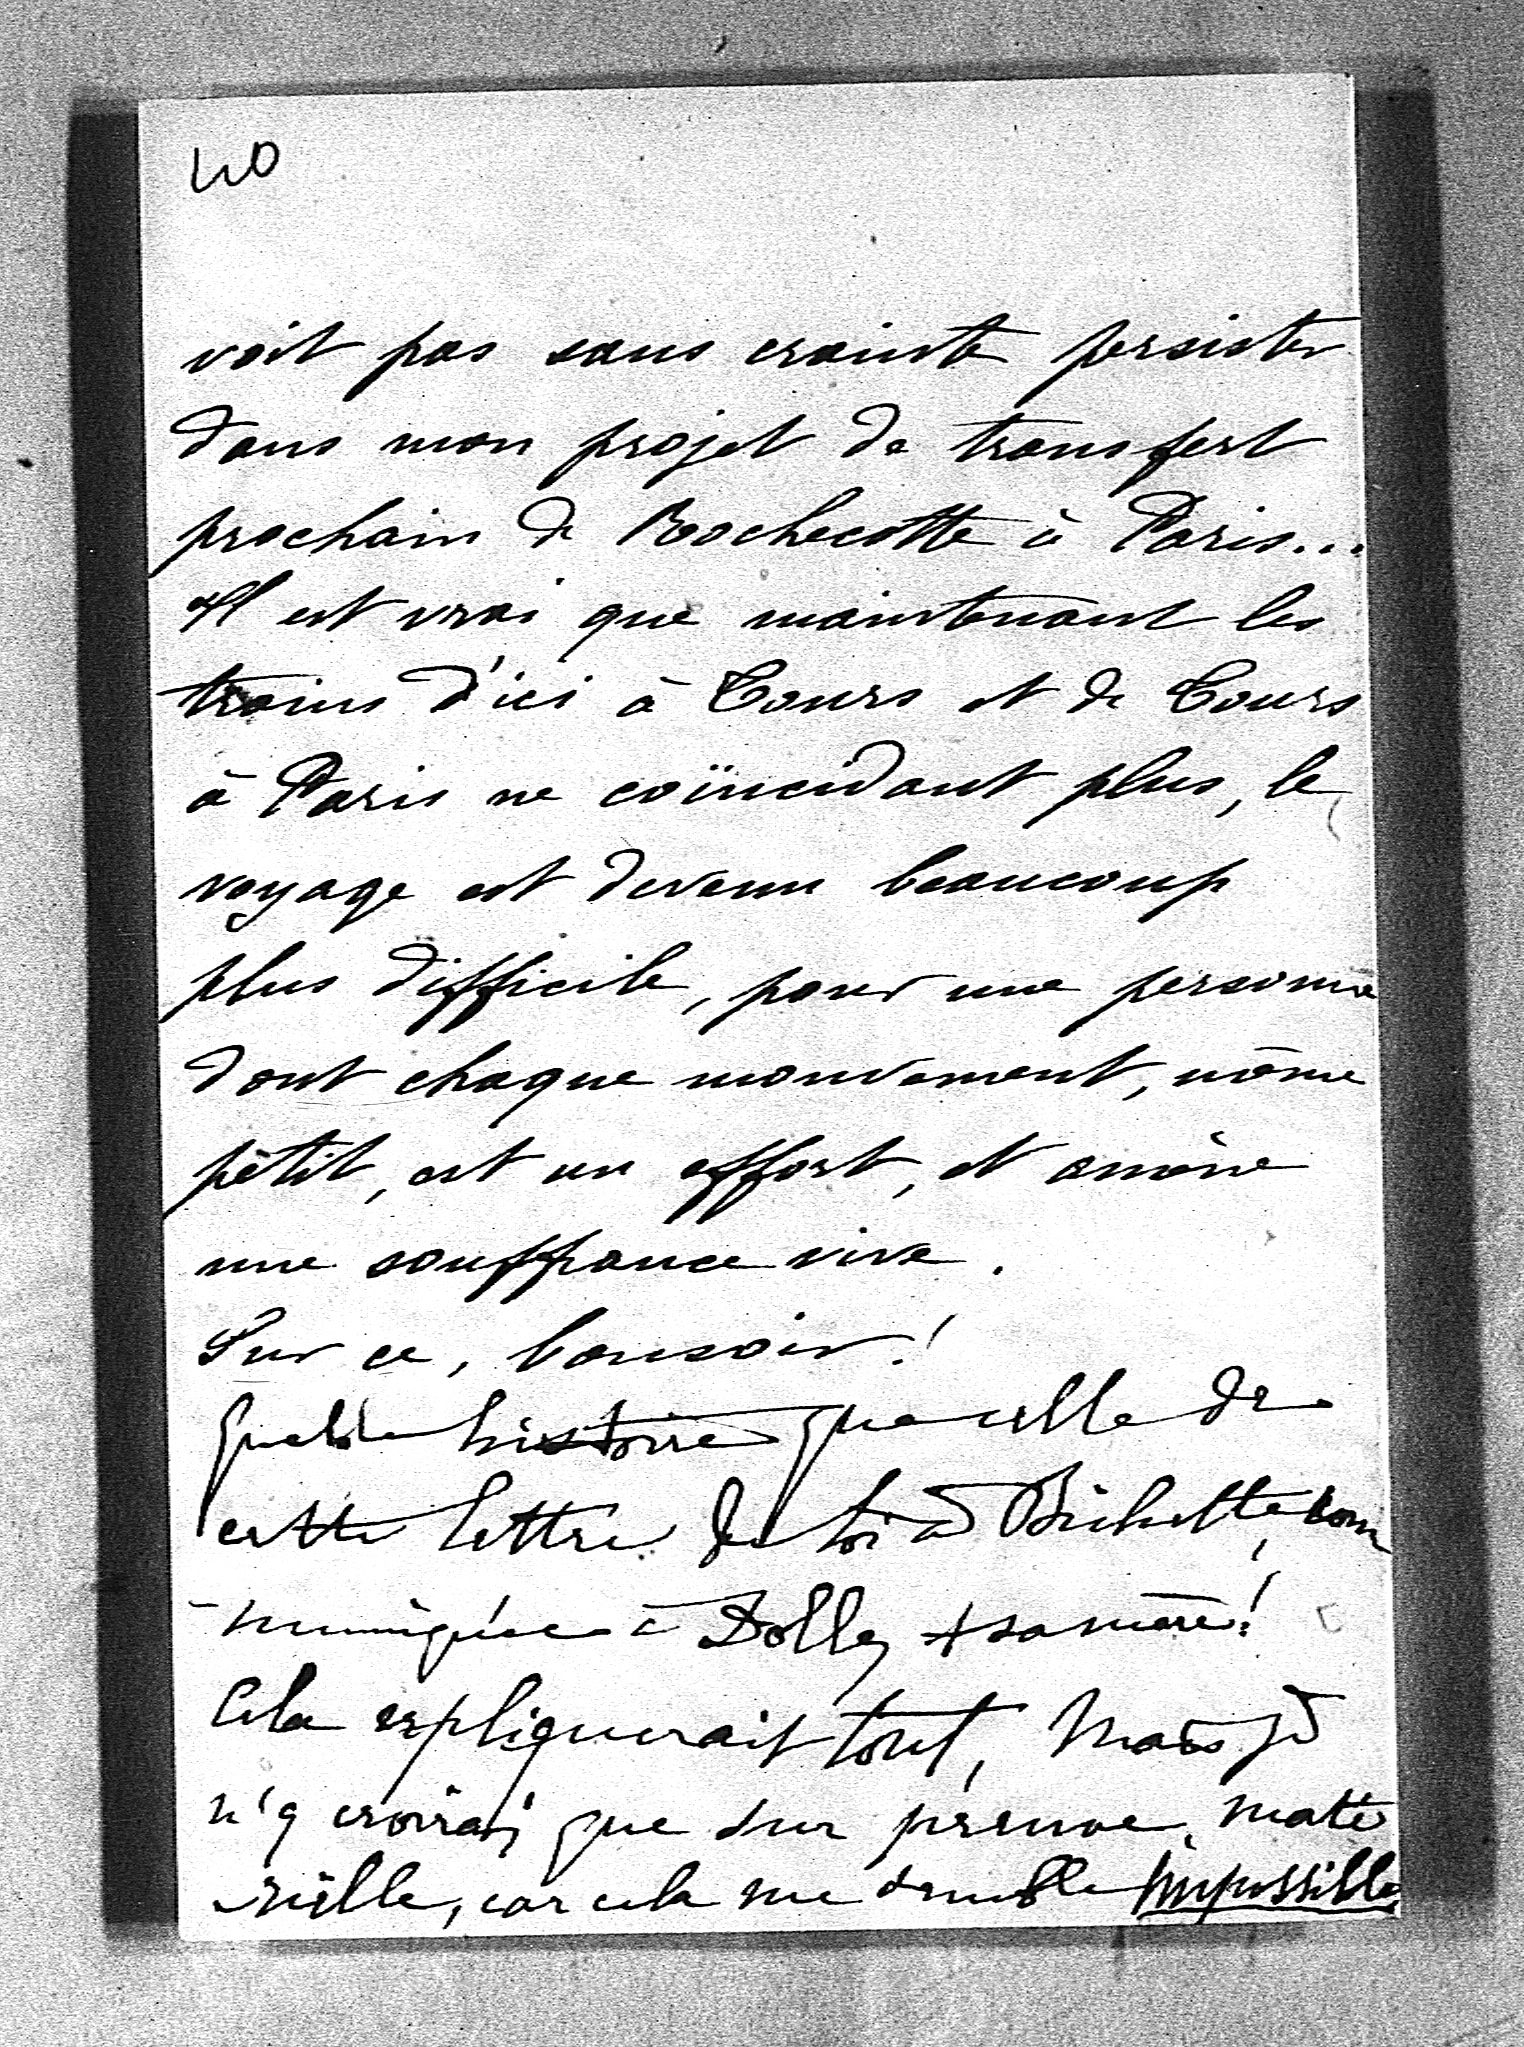 40
voit pas sans crainte persister
dans mon projet de transfert
prochain de Rochecotte à Paris...
Il est vrai que maintenant les
trains d'ici à Tours et de Tours
à Paris ne coïncidant plus, le
voyage est devenu beaucoup
plus difficile, pour une personne
dont chaque mouvement, même
petit, est un effort, et amène
une souffrance vive.
Sur ce, bonsoir!
Quelle histoire que celle de
cette lettre de toi à Bichette, com
-muniquée à Dolly & sa mère!
Cela expliquerait tout, Mais je
n'y croirai que sur preuve maté
-rielle, car cela me semble impossible